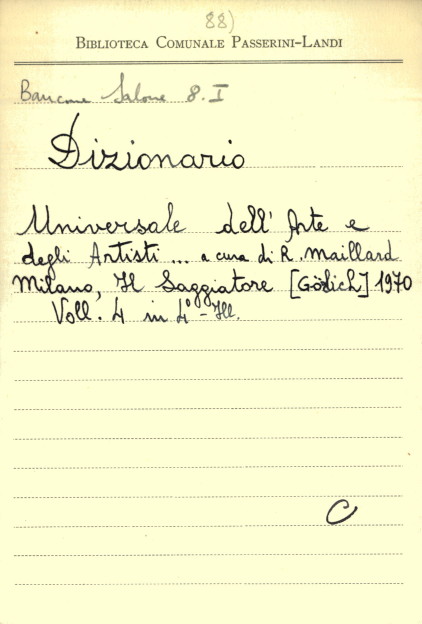 88)
BIBLIOTECA COMUNALE PASSERINI-LANDI
Bancone Salone 8. I
Dizionario
Universale dell'Arte e
degli Artisti ... a cura di R. Maillard
Milano, Il Saggiatore [Görlich] 1970
Voll. 4 in 4° - Ill.
C